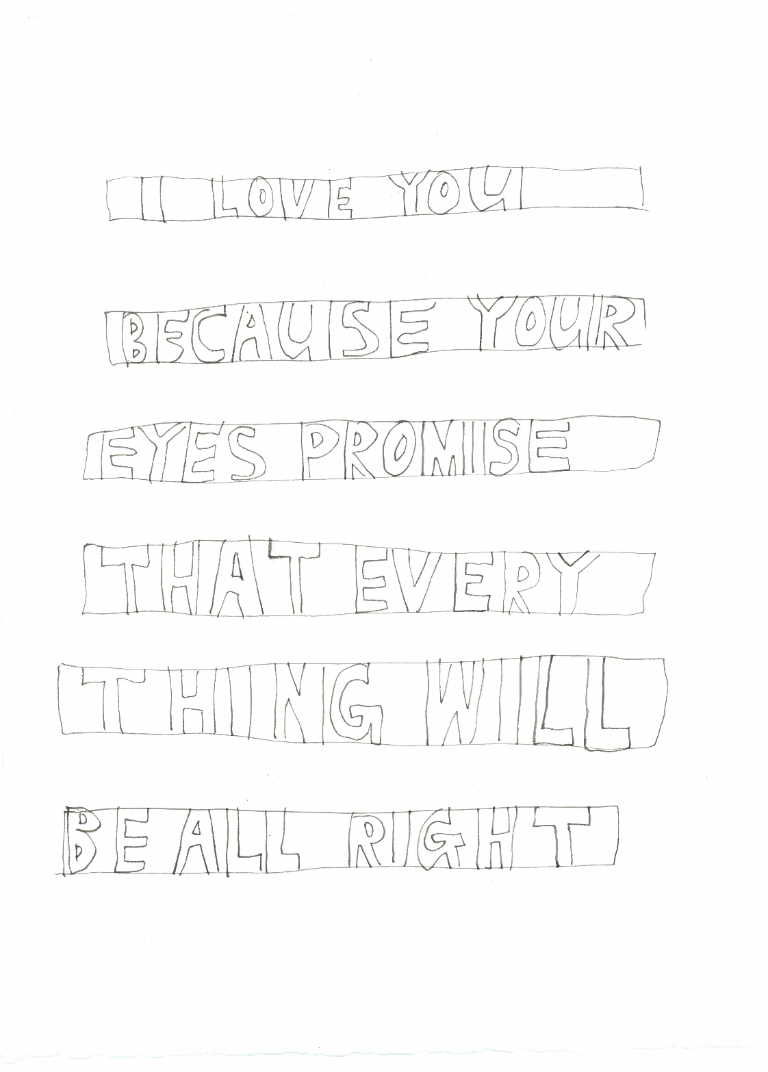 I LOVE YOU
BECAUSE YOUR
EYES PROMISE
THAT EVERY
THING WILL
BE ALL RIGHT